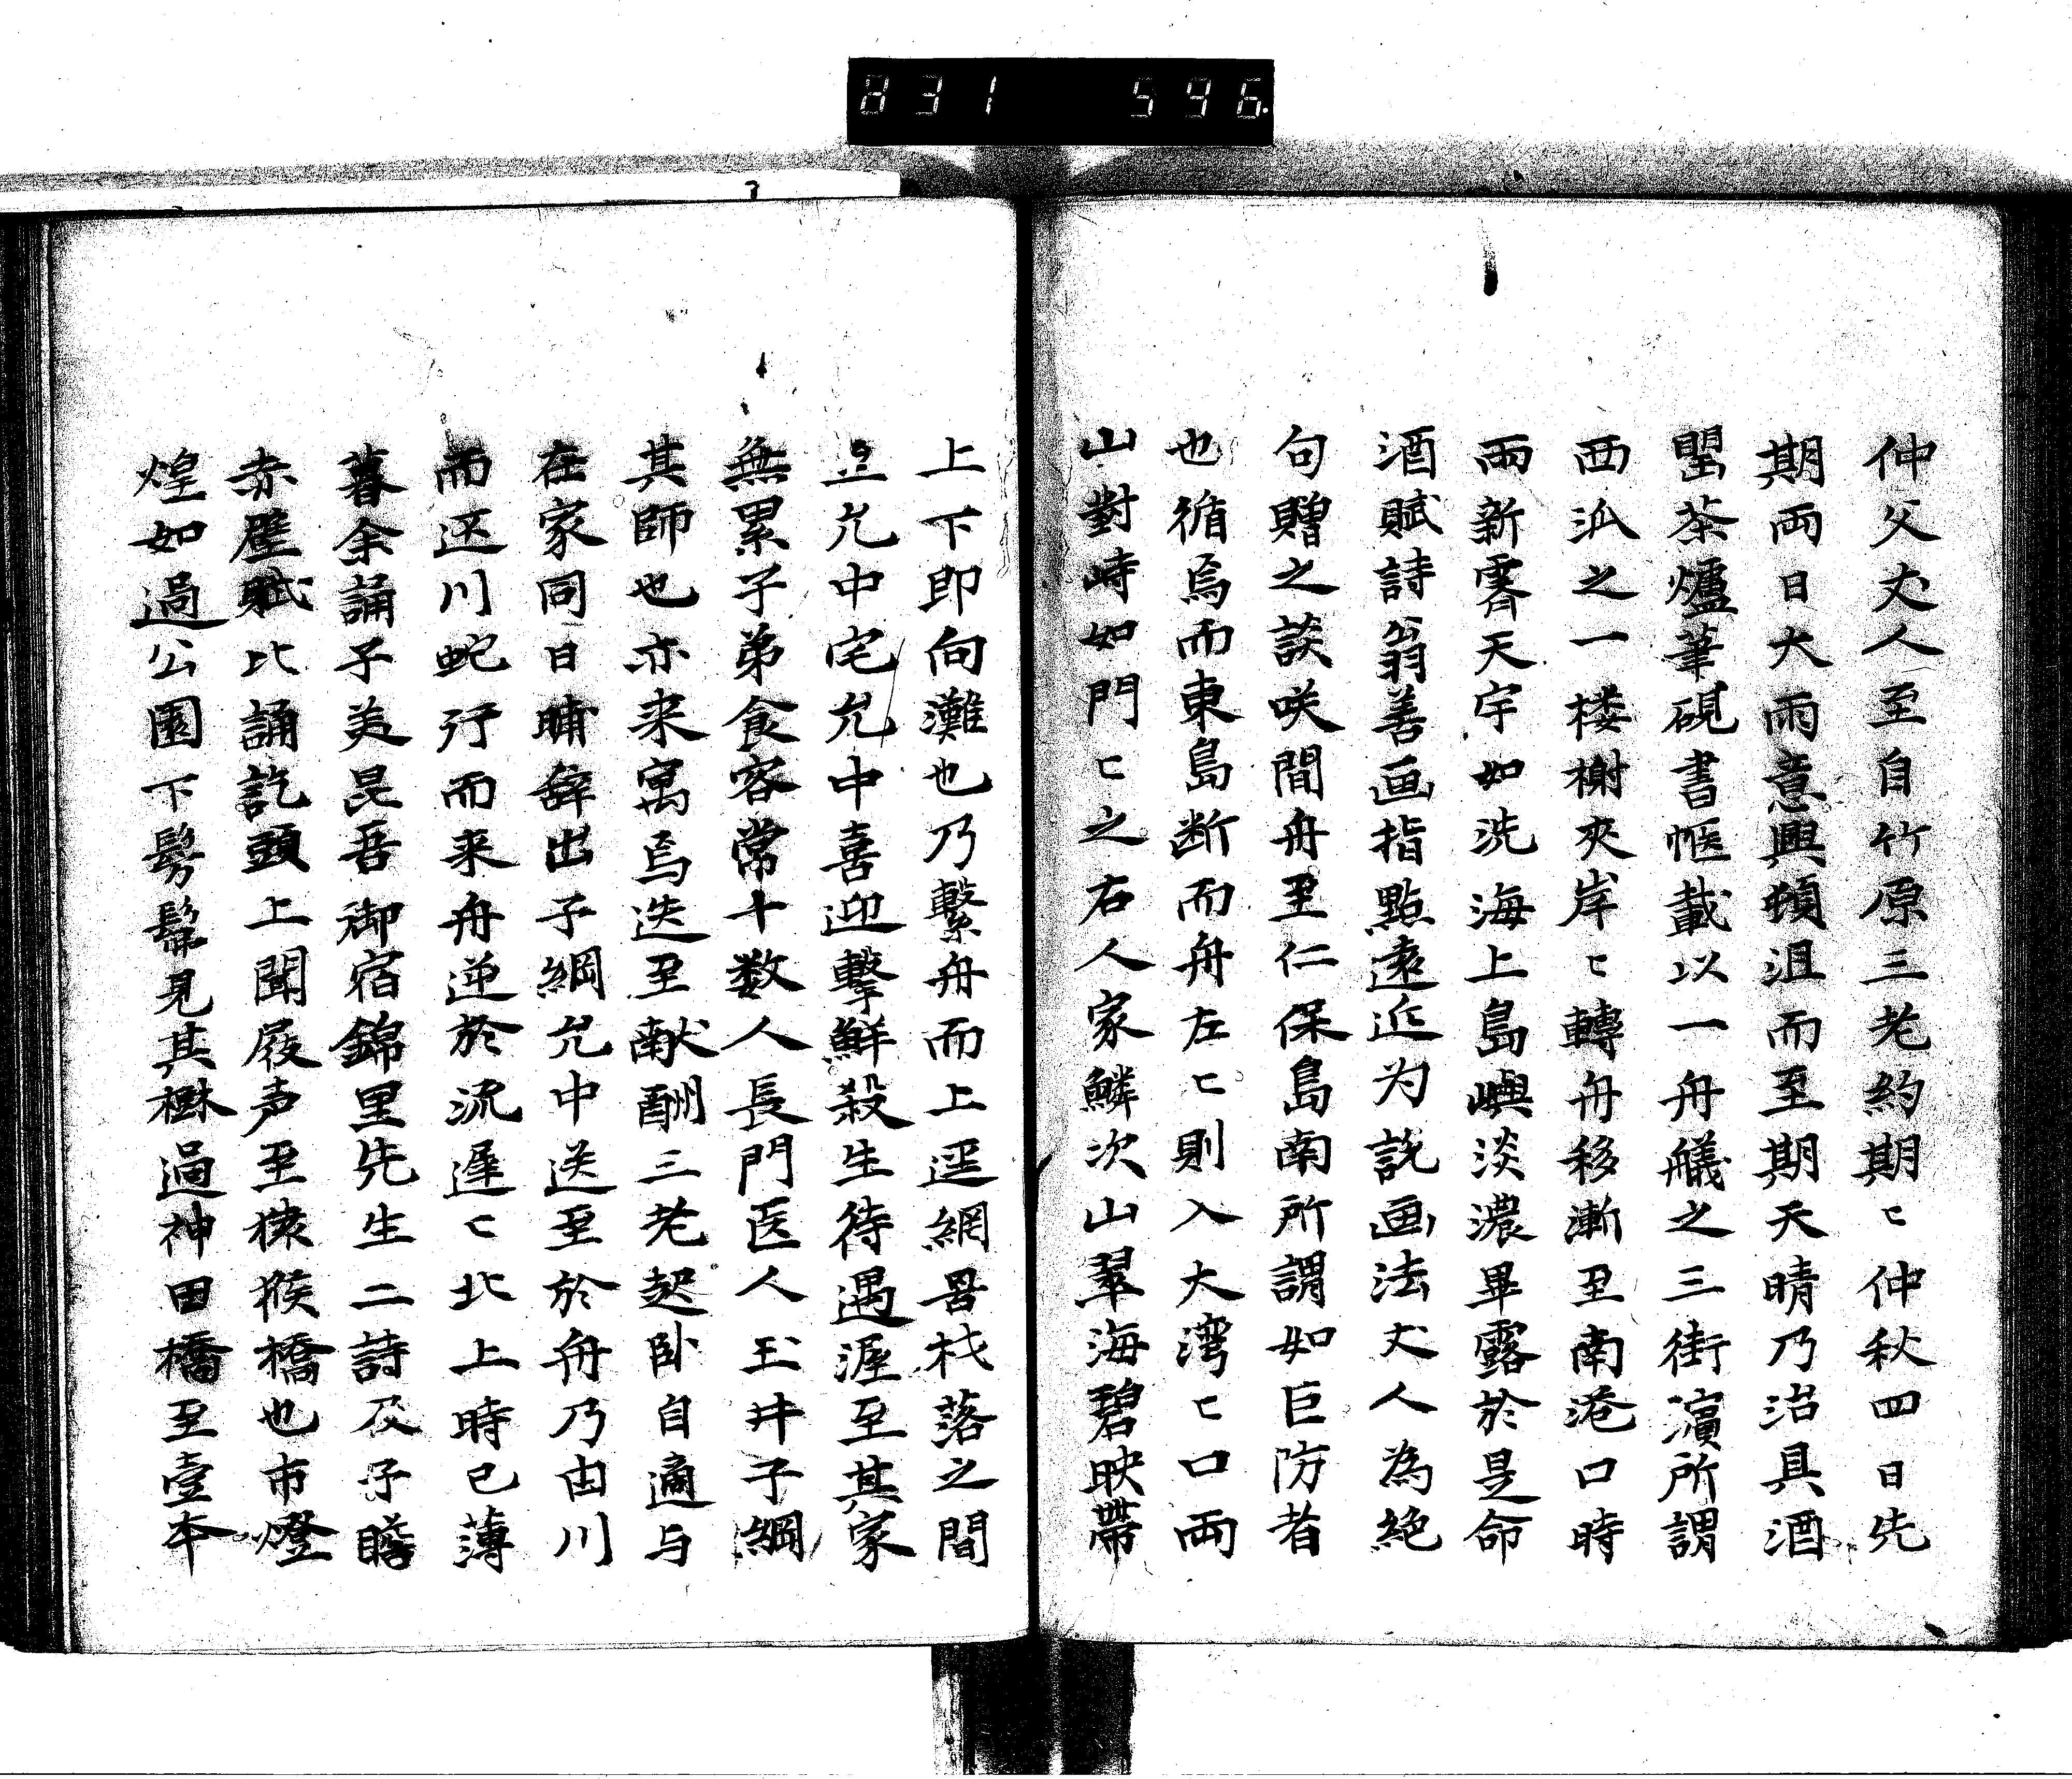 831 596.
仲父丈人至自竹原三老約期〻仲秋四日先
期両日大雨意興頓沮而至期天晴乃治具酒
罌茶爐筆硯書幄載以一舟艤之三街濵所謂
西派之一楼榭夾岸〻轉舟移漸至南港口時
雨新霽天宇如洗海上島嶼淡濃畢露於是命
酒賦詩翁善画指點遠近为説画法丈人為絶
句贈之談咲間舟至仁保島南所謂如巨防者
也循焉而東島断而舟左〻則入大湾〻口両
山對峙如門〻之右人家鱗次山翠海碧映帶
上下即向灘也乃繋舟而上逕網罟杙落之間
立允中宅允中喜迎擊鮮殺生待遇渥至其家
無累子弟食客常十数人長門医人玉井子綱
其師也亦来寓焉迭至献酬三老起卧自適与
在家同日晡辞出子綱允中送至於舟乃由川
而返川蛇行而来舟逆於流遅〻北上時已薄
暮余誦子美昆吾御宿錦里先生二詩及子瞻
赤壁賦比誦訖頭上聞屐声至猿猴橋也市燈
煌如過公園下髣髴見其楙過神田橋至壹本